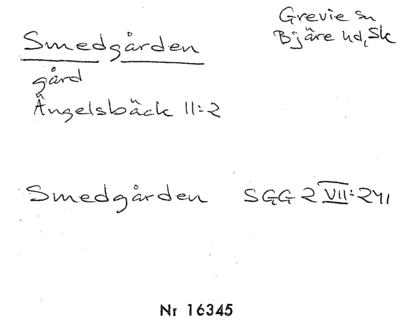 Grevie sn
Bjäre hd, Sk
Smedgården
gård
Ängelsbäck 11:2
Smedgården SGG 2 VII:241
Nr 16345